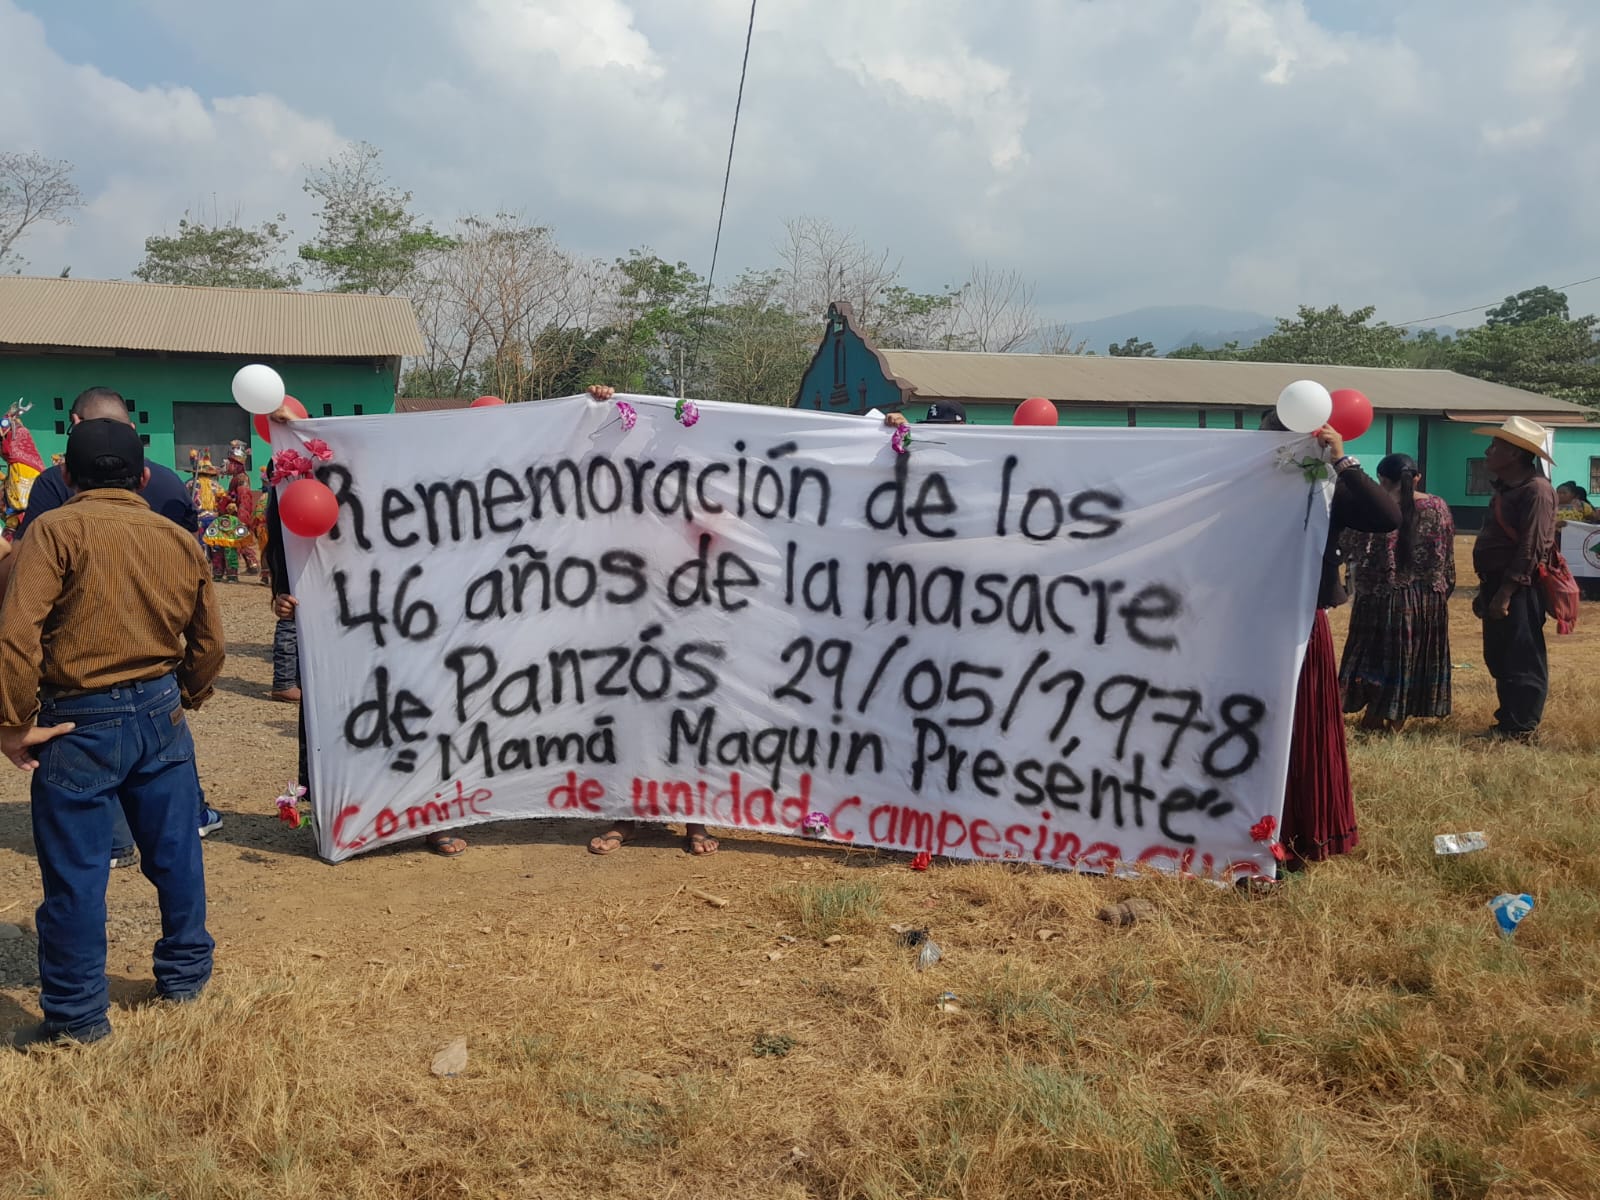 Rememoración de los
46 años de la masacre
de Panzós 29/05/1,978
"Mamá Maquin Presénte"
Comite de unidad campesina CUC